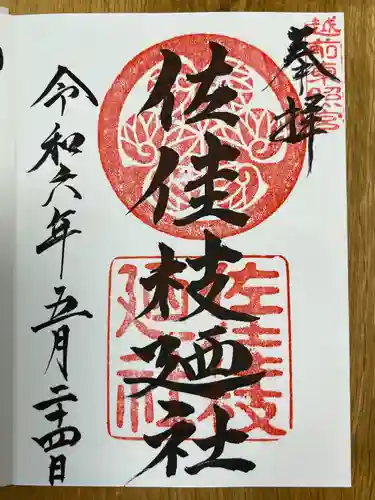 奉拝
越前東照宮
佐佳枝廼社
佐佳枝
廼社
令和六年五月二十四日